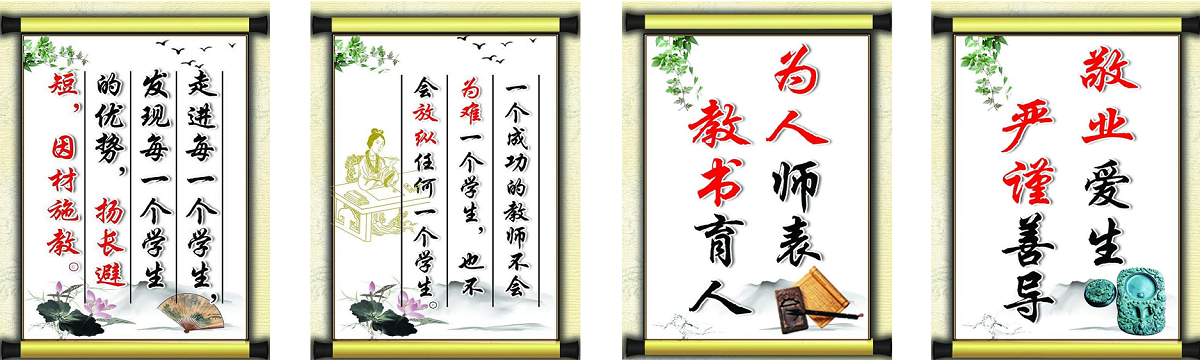 走进每一个学生，
发现每一个学生
的优势，扬长避
短，因材施教。
一个成功的教师不会
为难一个学生，也不
会放纵任何一个学生。
为人师表
教书育人
敬业爱生
严谨善导